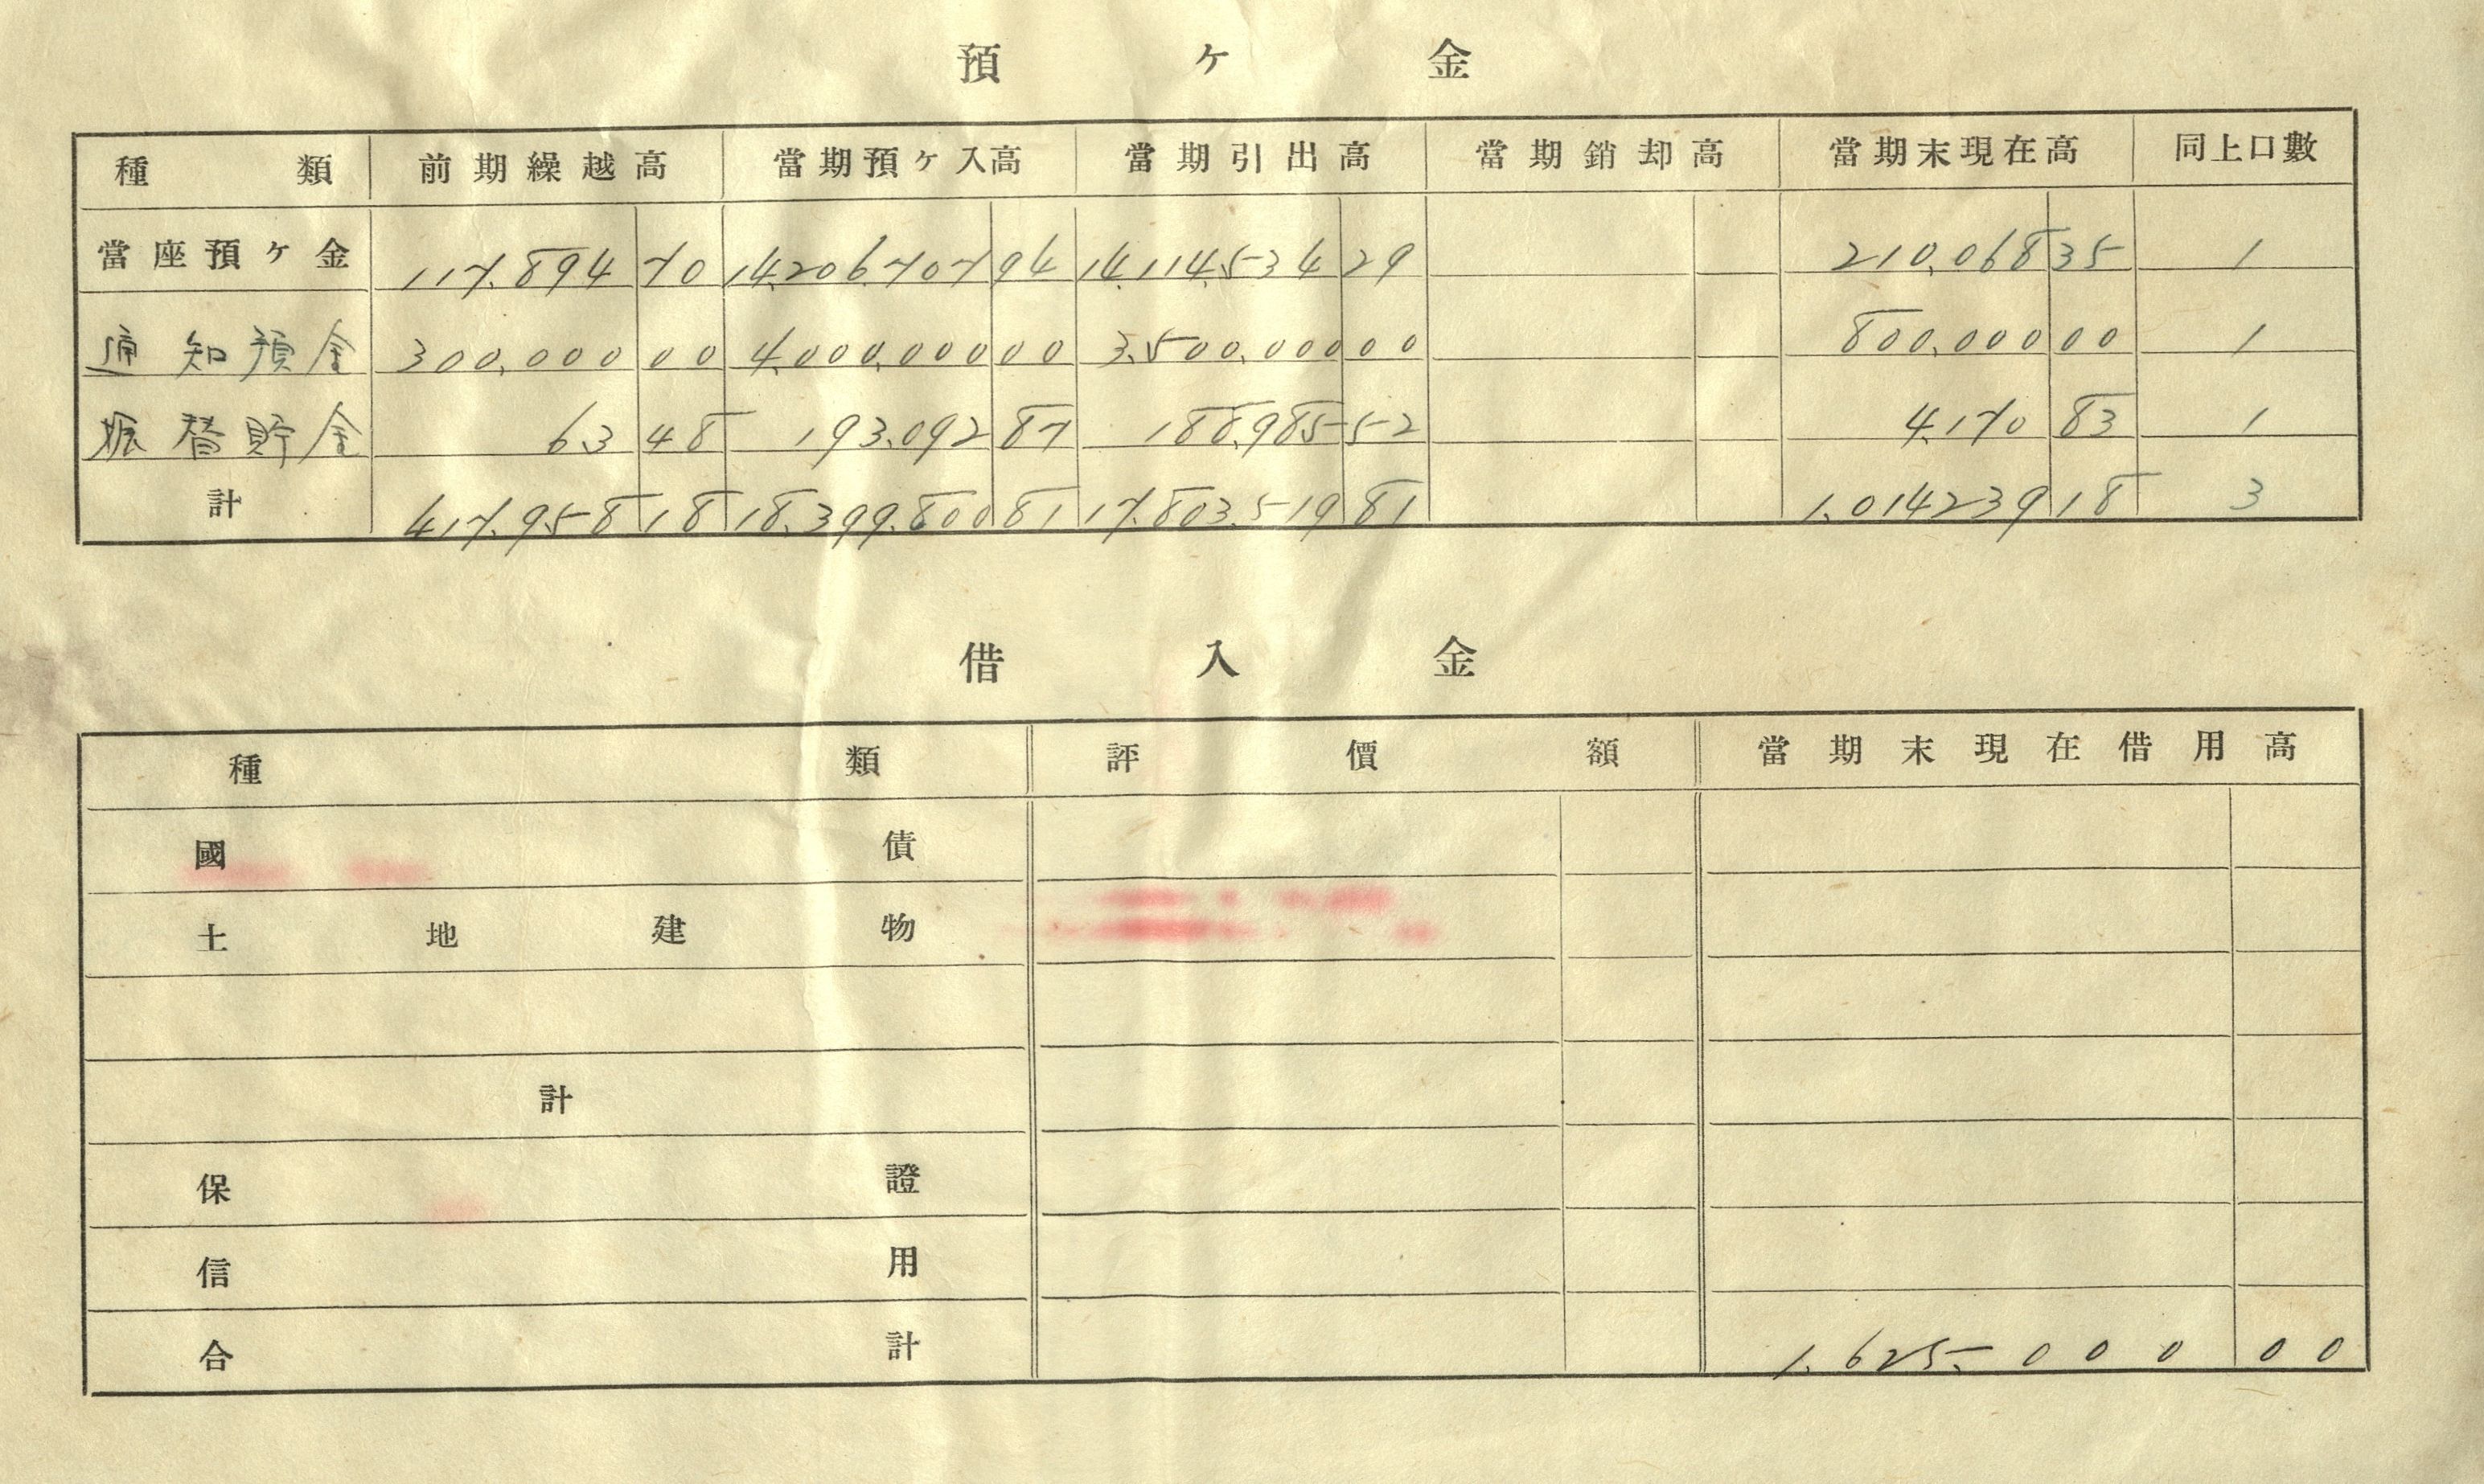 預ケ金
種類 前期繰越高 當期預ケ入高 當期引出高 當期銷却高 當期末現在高 同上口數
當座預ケ金 117.894 70 14.206.707 94 14.114.534 29 210.068 35 1
通知預金 300.000 00 4.000.000 00 3.500.000 00 800.000 00 1
振替貯金 63 48 193.092 87 188.985 52 4.170 83 1
計 417.958 18 18.399.800 81 17.803.519 81 1.014239 18 3
借入金
種類 評價額 當期末現在借用高
國債
土地建物
計
保證
信用
合計 1.625.000 00